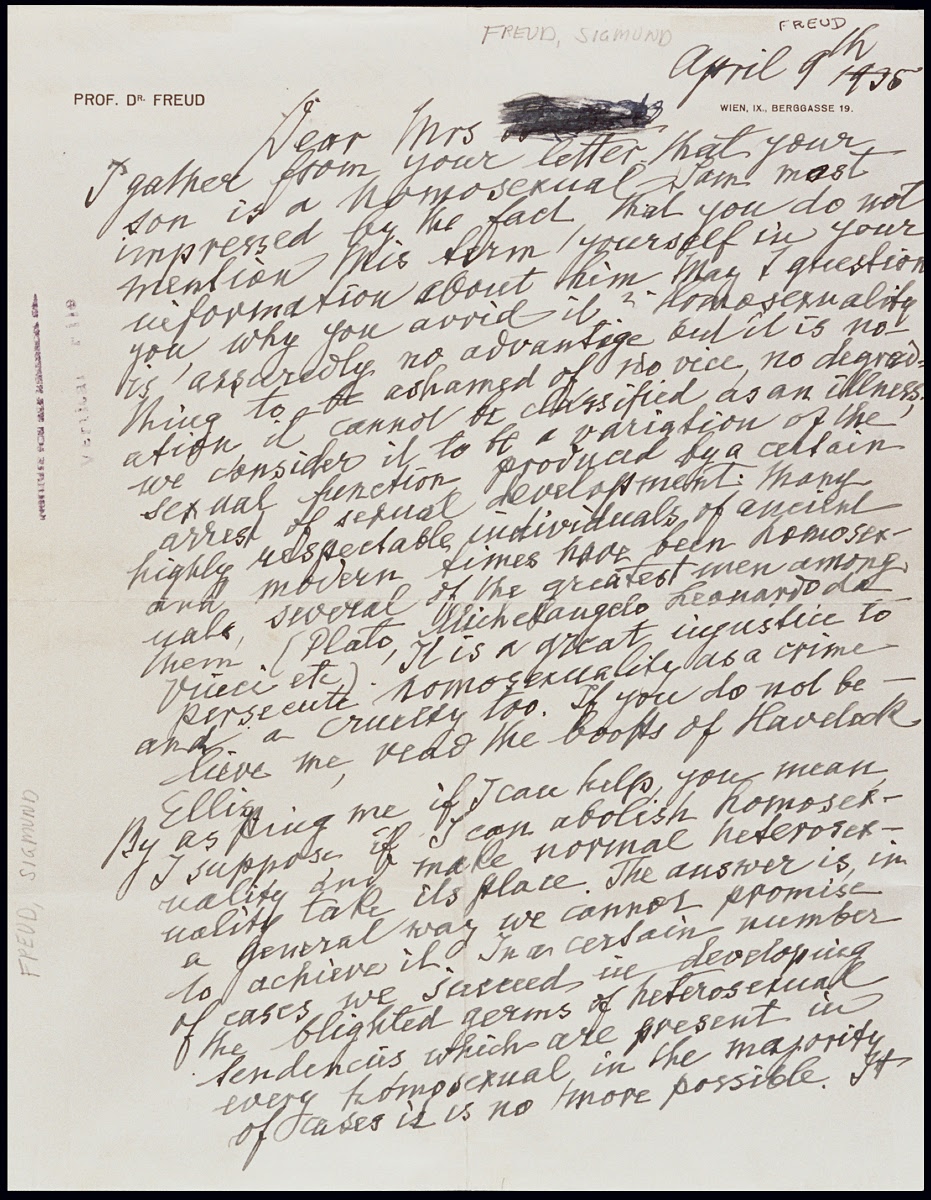 FREUD, SIGMUND
FREUD
April 9th 1935
PROF. DR. FREUD
WIEN, IX., BERGGASSE 19.
Dear Mrs
I gather from your letter that your
son is a homosexual. I am most
impressed by the fact that you do not
mention this term yourself in your
information about him. May I question
you why you avoid it? Homosexuality
is assuredly no advantage but it is no-
thing to be ashamed of, no vice, no degrad-
ation, it cannot be classified as an illness;
we consider it to be a variation of the
sexual function produced by a certain
arrest of sexual development. Many
highly respectable individuals of ancient
and modern times have been homosex-
uals, several of the greatest men among
them (Plato, Michelangelo, Leonardo da
Vinci etc). It is a great injustice to
persecute homosexuality as a crime
and a cruelty too. If you do not be-
lieve me, read the books of Havelock
Ellis.
By asking me if I can help, you mean,
I suppose if I can abolish homosex-
uality and make normal heterosex-
uality take its place. The answer is, in
a general way we cannot promise
to achieve it. In a certain number
of cases we succeed in developing
the blighted germs of heterosexual
tendencies which are present in
every homosexual in the majority
of cases it is no more possible. It
Vertical File
FREUD, SIGMUND